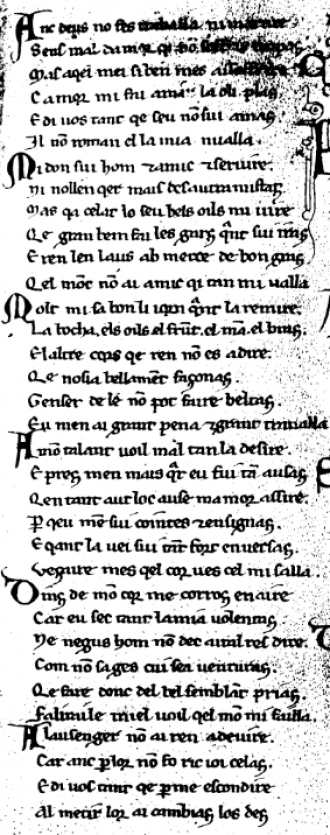 Anc deus no fes
Senes mal damor qi no
Mas aqel mei si ben mes
Camor mi fai amar la oli plas
E di uos tant qe seu no fui amas
Il no roman el la mia nualla
Midon sui hom & amic & seruire
ni nollen qer mais des autra mistas
mas qa celar lo seu bels oils mi uire
Qe gran ben fan les gars qant sui iras
E ren len laus ab merce de bon gras
Qel mon no ai amic qi tan mi ualla
Molt mi sa bon li iorn qant la remire
La bocha els oils el front el mas el bras
E laltre cors qe ren no es a dire
Qe no sia bellament faconas
Genser de le no pot faire beltas
Eu men ai grant pena & grant
A mo talant uoil mal tan la desire
E pres men mais qar eu fui tan ausas
Qen tant aut loc ause mamor assire
Per qeu me sui cointes & ensignas
E qant la uei sui tant fort enuersas
Veiaire mes qel cor ues cel mi salla
Dinz de mo cor me corros en aire
Car eu sec tant la mia uolentas
Ne negus hom no dec aital ren dire
Com no sages cui sea uenturas
Qe fare donc del bel semblan prias
falirai le miel uoil qel mon mi failla
A lausenger no ai ren a deuire
Car anc per lor no fo ric ioi celas
E di uos tant qe per me escondire
Al mentir lor ai cambias los des